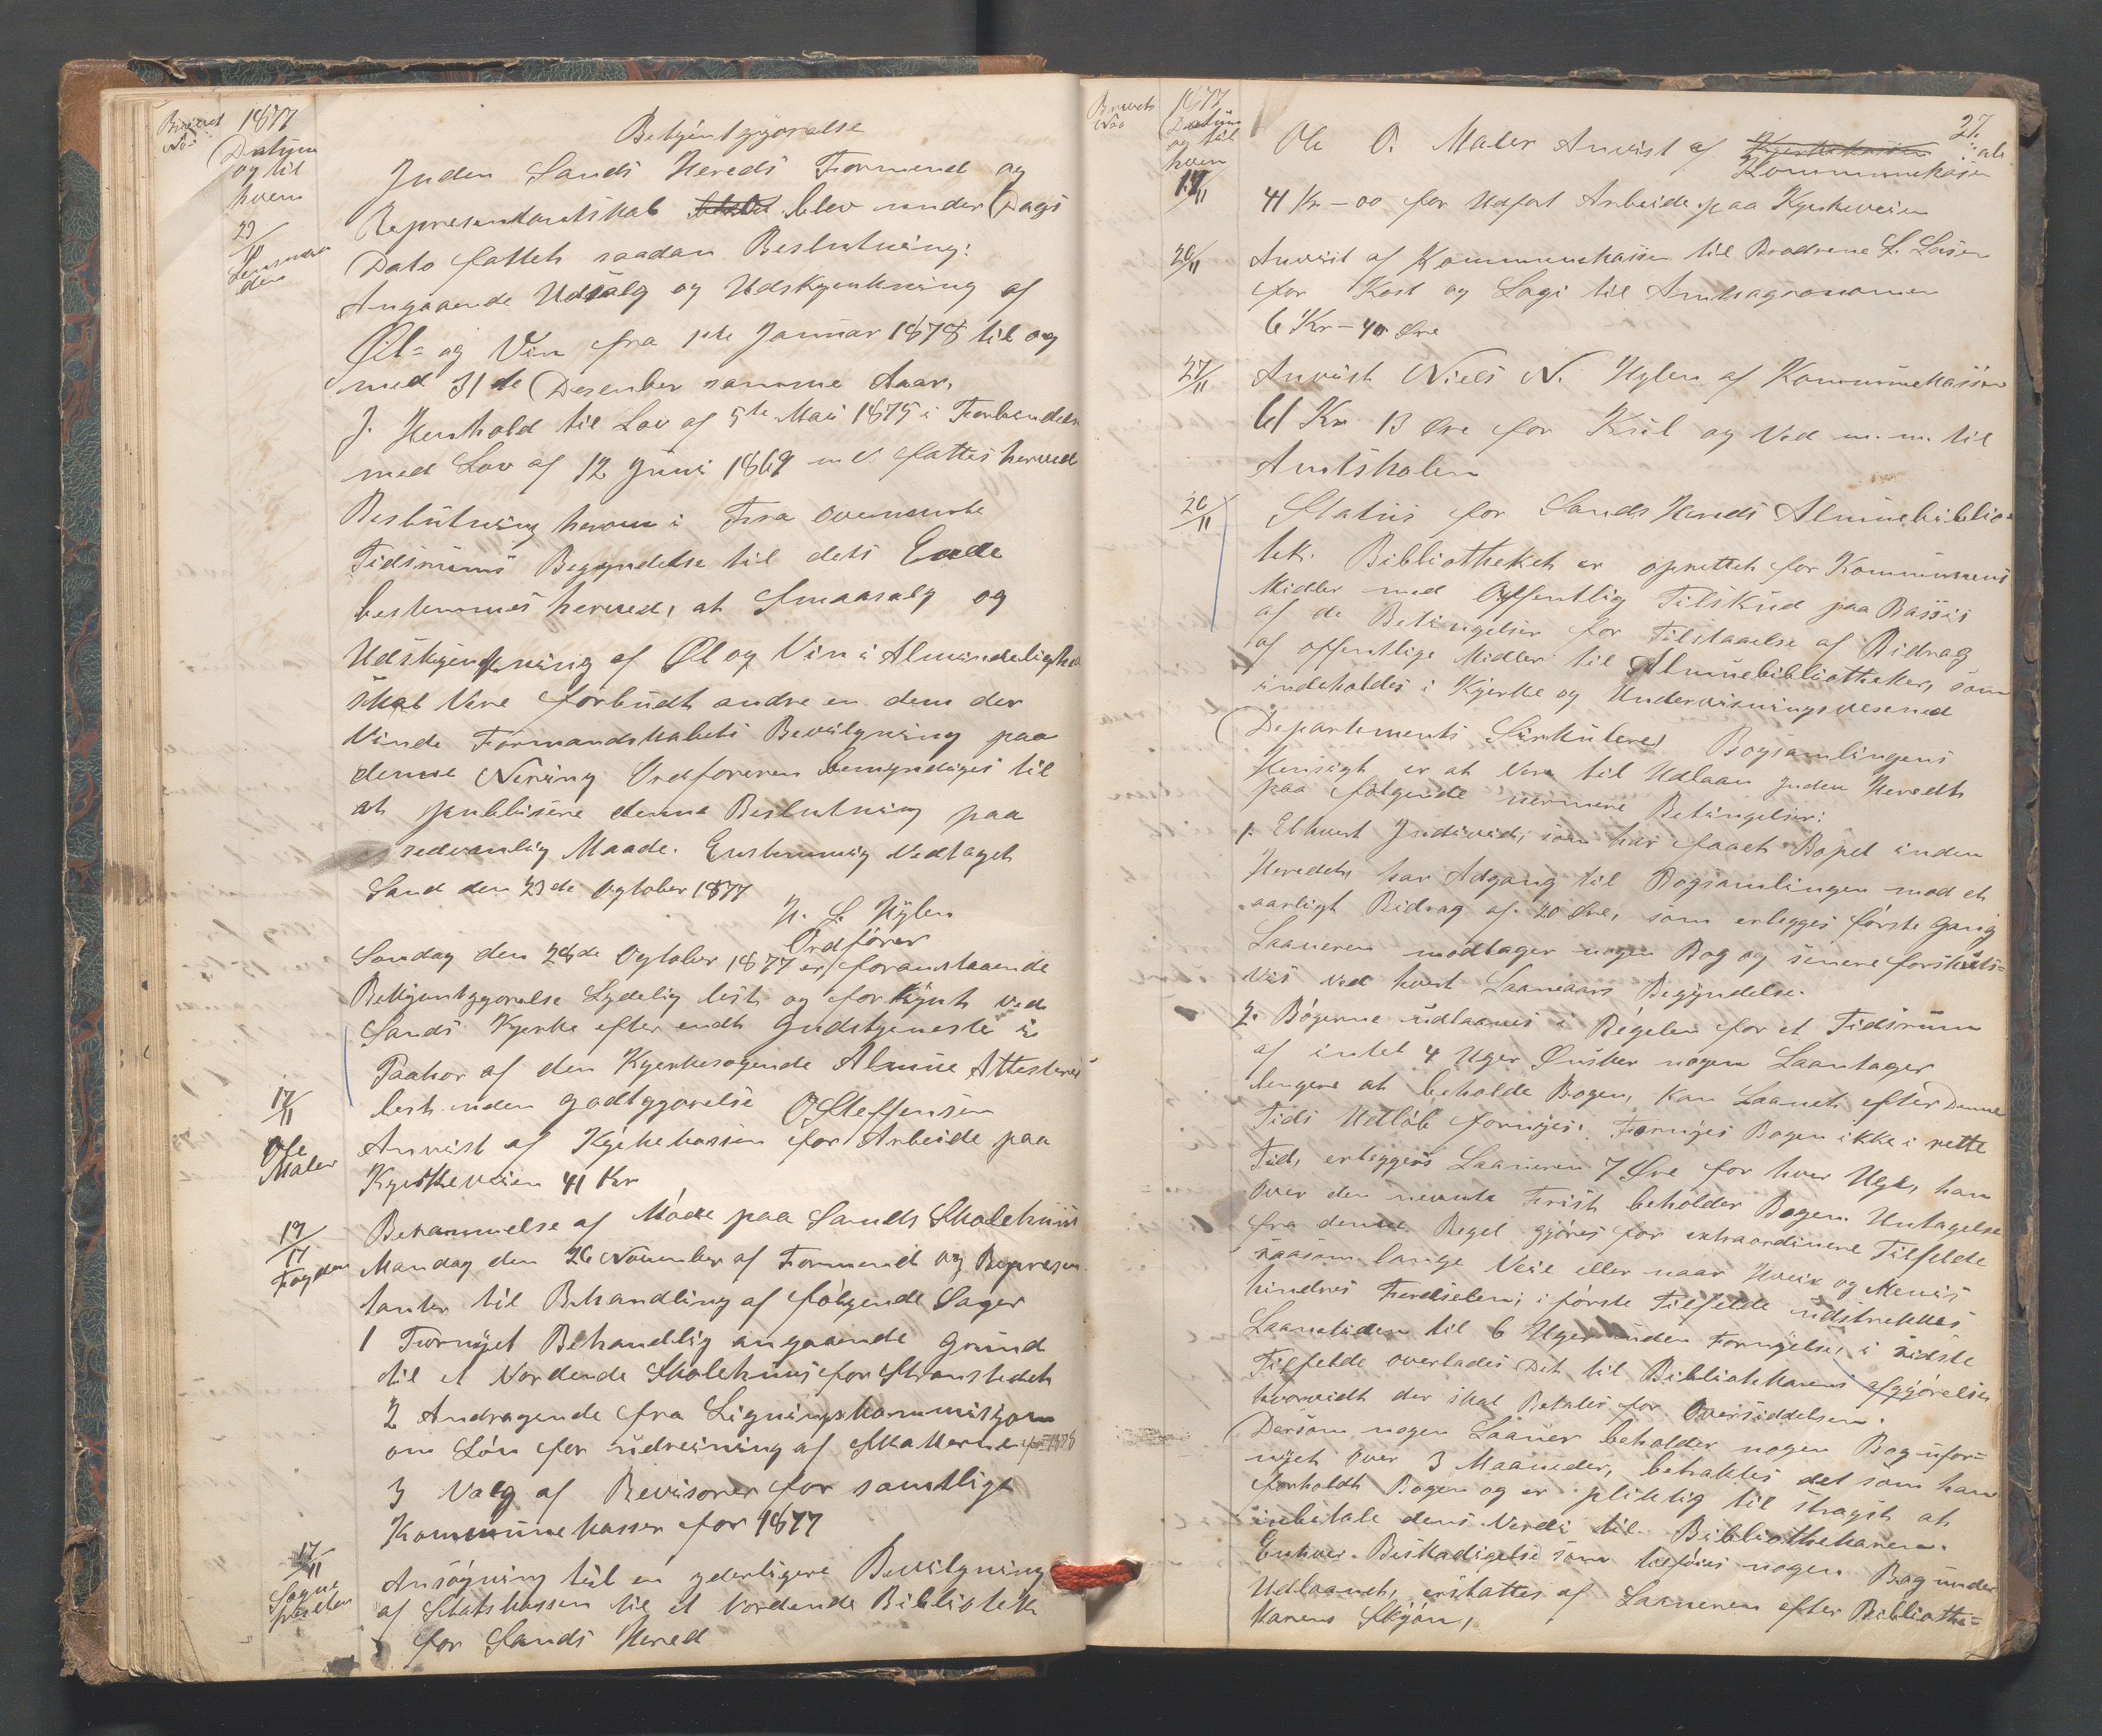 Brevets No 1877
Datum og til hvem
Bekjentgjørelse
23/10 Lensmanden
Inden Sands Hereds Formend og
Representantskab blev under Dags
Dato fattet saadan Beslutning:
Angaaende Udsalg og Udskjenkning af
Øl= og Vin fra 1ste Januar 1878 til og
med 31de Desember samme Aar,
I. Henhold til Lov af 5te Mai 1875 i Forbindelse
med Lov af 12 Juni 1869 m V fattes herved
Beslutning herom i Fra ovennevnte
Tidsrums Begyndelse til dets Ende
bestemmes herved, at Smaasalg og
Udskjenkning af Øl og Vin i Almindelighed
skal Vere forbudt andre en dem der
Vinde Formandskabets Bevilgning paa
denne Nering Ordføreren bemyndiges til
at publisere denne Beslutning paa
sedvanlig Maade. Enstemmig Vedtaget
Sand den 23de Ogtober 1877
N. L. Hylen
Ordfører
Søndag den 28de Ogtober 1877 er foranstaaende
Bekjentgjørelse Lydelig lest og forkynt ved
Sands Kjerke efter endt Gudstjeneste i
Paahør af den Kjerkesøgende Almue Attesteres
lest uden godtgjørelse O Steffensen
17/11 Ole Maler
Anvist af Kjerkekassen for Arbeide paa
Kjerkeveien 41 Kr
19/11 Fogden
Berammelse af Møde paa Sands Skolehuus
Mandag den 26 November af Formend og Represen
tanter til Behandling af følgende Sager
1 Fornyet Behandlig angaaende Grund
til et Vordende Skolehuus for Stranstedet
2 Andragende fra Ligningskommisjonen
om Løn for udreining af Skatterne for 1878
3 Valg af Revisorer for samtlige
Kommunekasser for 1877
17/11 Sogne presten
Ansøgning til en yderligere Bevilgning
af Statskassen til et Vordende Bibliotek
for Sands Hered
27.
Brevets No 1877
Datum og til hvem
17/11
Ole O. Maler Anvist af Kjerkekassen
Kommunekassen
41 Kr – 00 for Udført Arbeide paa Kjerkeveien
20/11
Anvist af Kommunekassen til Brødrene L. Larsen
for Kost og Logi til Amtsagronomen
6 Kr – 40 Øre
27/11
Anvist Niels N. Hylen af Kommunekassen
61 Kr 13 Øre for Kul og Ved m. m. til
Amtskolen
20/11
Status for Sands Hereds Almuebiblio=
tek. Bibliotheket er oprettet for Kommunens
Midler med Offentlig Tilskud paa Bassis
af de Betingelser for Tilstaaelse af Bidrag
af offentlige Midler til Almuebibliotheker, som
indeholdes i Kjerke og Undervisningsvesened
Departements Sirkulere, Bogsamlingens
Hensigt er at Vere til Udlaan Inden Heredet
paa følgende nermere Betingelser:
1. Ethvert Individ, som har faaet Bopel inden
Heredet, har Adgang til Bogsamlingen mod et
aarligt Bidrag af 20 Øre, som erlegges første Gang
Laaneren modtager nogen Bog og senere forskuds=
Vis ved hvert Laaneaars Begyndelse.
2. Bøgerne udlaanes i Regelen for et Tidsrum
af intil 4 Uger Ønsker nogen Laantager
lengere at beholde Bogen, kan Laanet efter Denne
Tids Udløb fornyes. Fornyes Bogen ikke i rette
Tid, erlegges Laaneren 7 Øre for hver Uge, han
over den nevnte Frist beholder Bogen. Untagelse
fra denne Regel gjøres for extraordinere Tilfelde
saasom lange Veie eller naar Uveir og Menis
hindres Ferdselen; i første Tilfelde udstrekkes
Laanetiden til 6 Uger uden Fornyelse, i sidste
Tilfelde overlades Det til Bibliothekarens afgjørelse
hvorvidt der skal Betales for Oversiddelsen.
Dersom nogen Laaner beholder nogen Bog ufor=
nyet over 3 Maaneder, betraktes det som han
forholdt Bogen og er pliktig til stragst at
inbetale dens Verdi til Bibliothekaren.
Enhver Beskadigelse som tilføies nogen Bog under
Udlaanet, erstattes af Laaneren efter Bibliothe=
karens Skjøn,